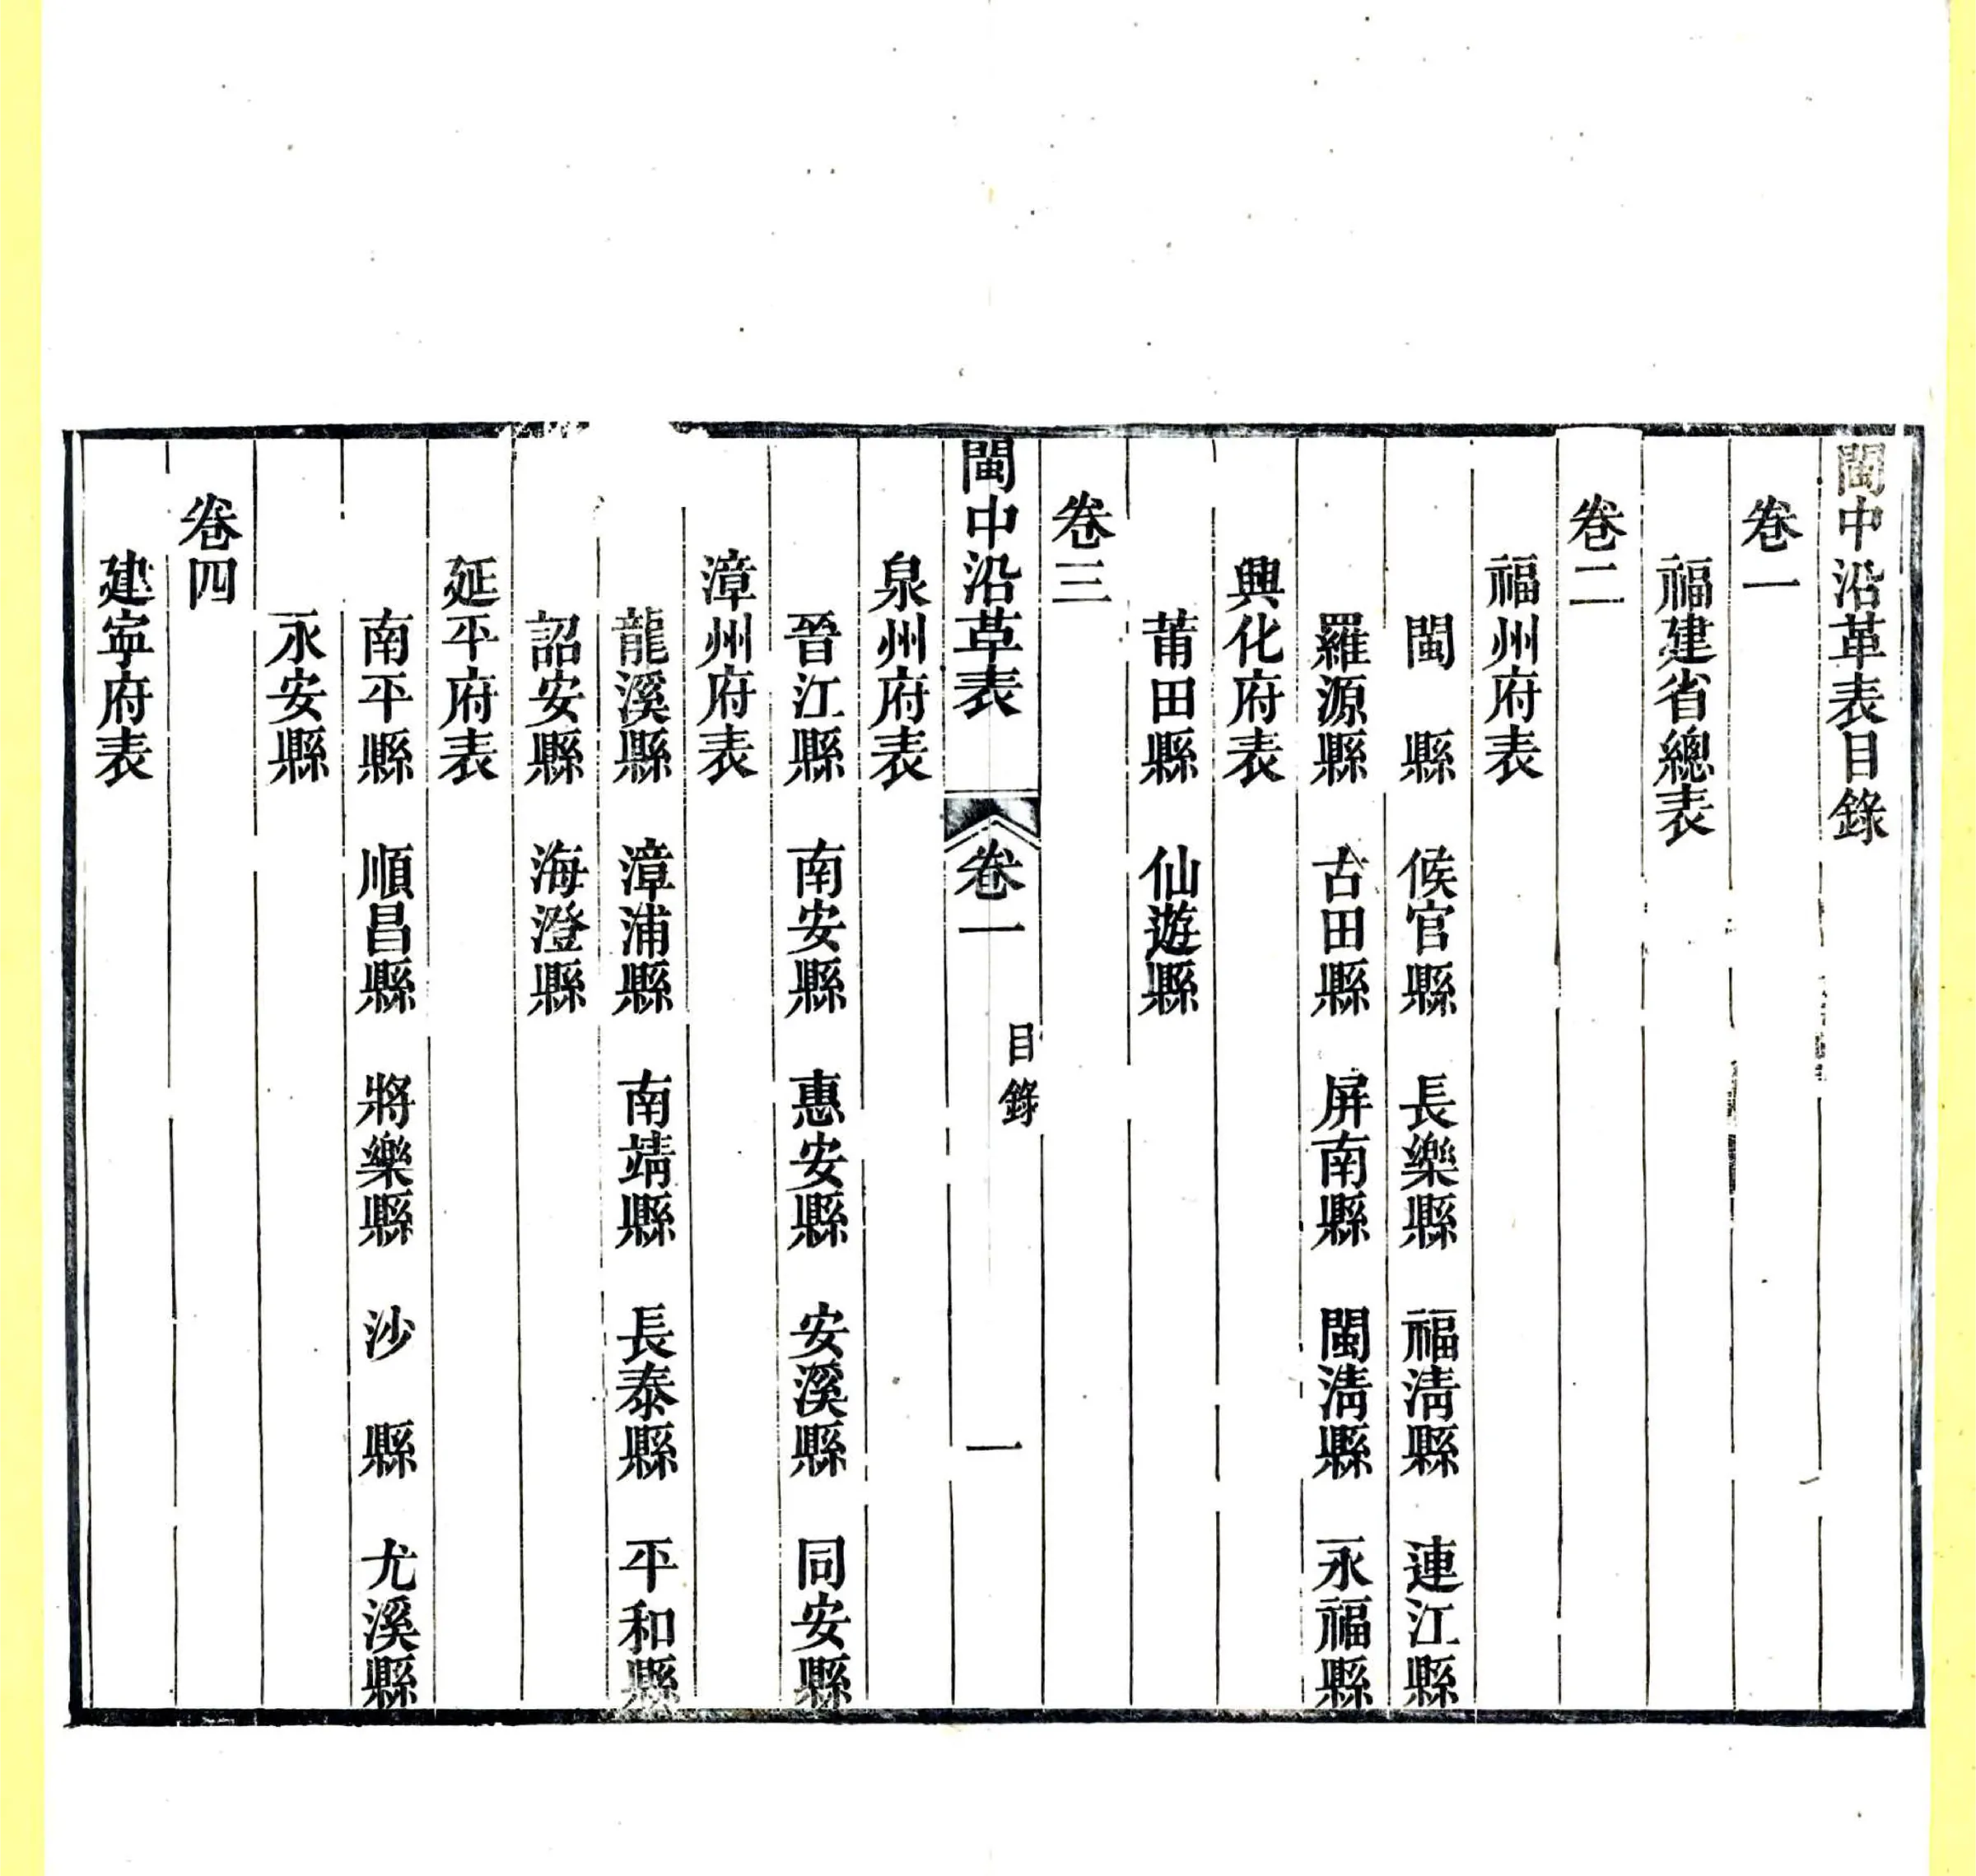 閩中沿革表目錄
卷一
福建省總表
卷二
福州府表
閩縣 候官縣 長樂縣 福淸縣 連江縣
羅源縣 古田縣 屏南縣 閩淸縣 永福縣
興化府表
莆田縣 仙遊縣
卷三
閩中沿革表 卷一 目錄 一
泉州府表
晉江縣 南安縣 惠安縣 安溪縣 同安縣
漳州府表
龍溪縣 漳浦縣 南靖縣 長泰縣 平和縣
詔安縣 海澄縣
延平府表
南平縣 順昌縣 將樂縣 沙縣 尤溪縣
永安縣
卷四
建寧府表